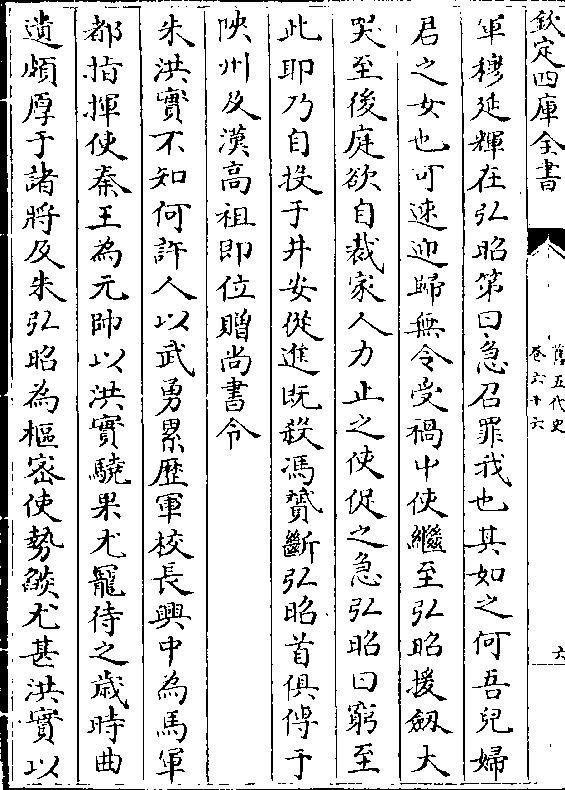 欽定四庫全書
舊五代史
卷六十六
六
軍穆延輝在弘昭第曰急召罪我也其如之何吾兒婦
君之女也可速迎歸無令受禍中使繼至弘昭援劒大
哭至後庭欲自裁家人力止之使促之急弘昭曰窮至
此耶乃自投于井安從進既殺馮贇斷弘昭首俱傳于
陜州及漢高祖即位贈尚書令
朱洪實不知何許人以武勇累歴軍校長興中為馬軍
都指揮使秦王為元帥以洪實驍果尤寵待之歲時曲
遺頗厚于諸將及朱弘昭為樞密使勢燄尤甚洪實以